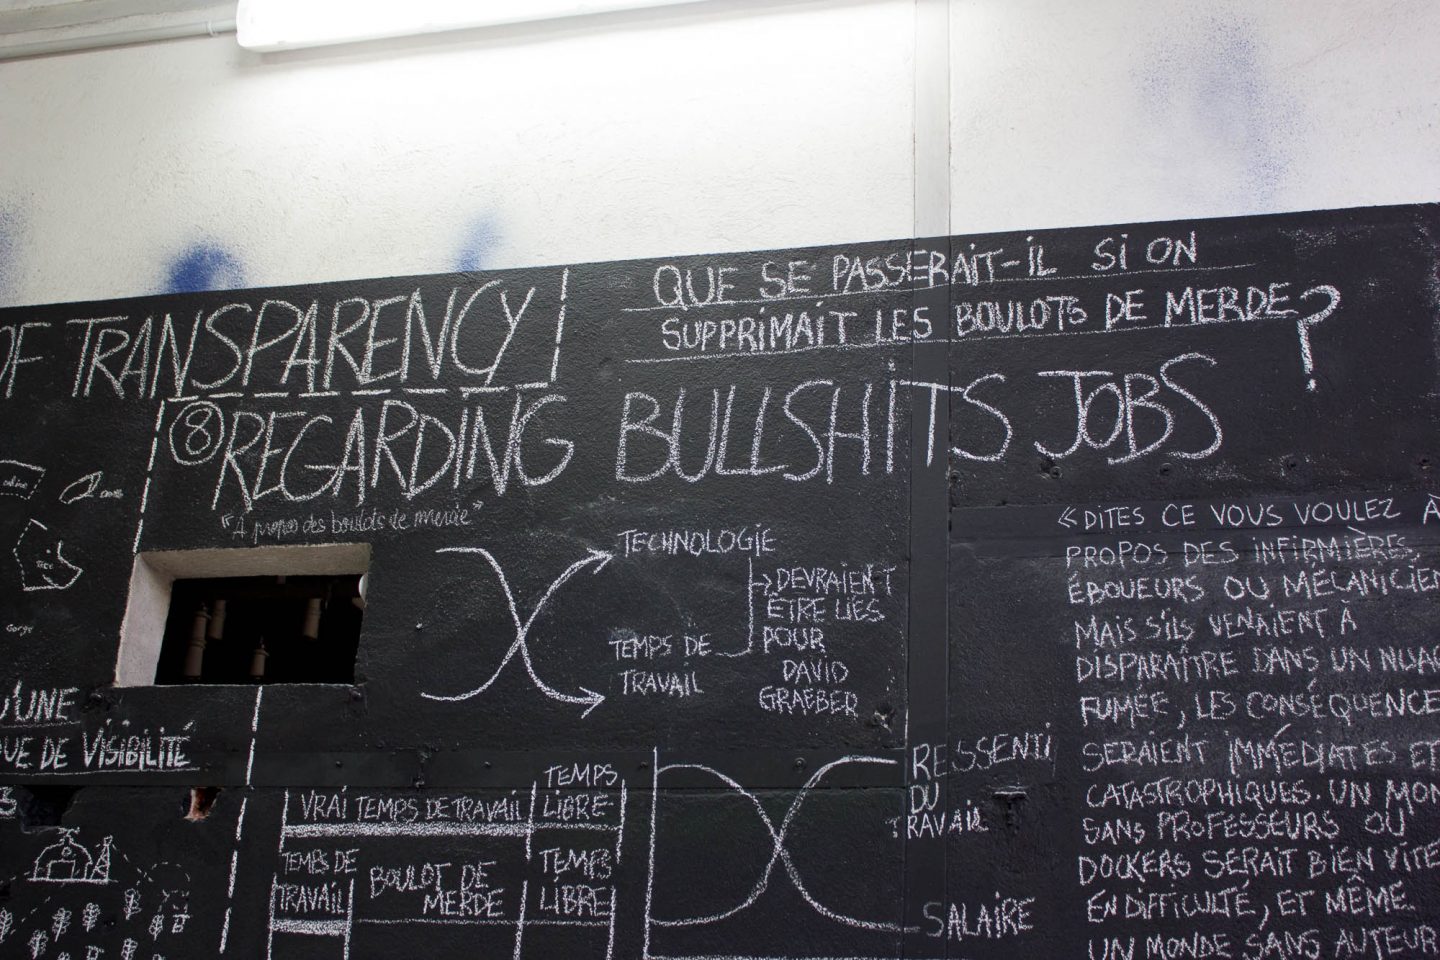 OF TRANSPARENCY
QUE SE PASSERAIT-IL SI ON
SUPPRIMAIT LES BOULOTS DE MERDE?
⑧ REGARDING BULLSHITS JOBS
"A propos des boulots de merde"
TECHNOLOGIE
DEVRAIENT
ETRE LIÉS
POUR
DAVID
GRAEBER
TEMPS DE
TRAVAIL
Gorge
'UNE
UE DE VISIBILITÉ
VRAI TEMPS DE TRAVAIL
TEMPS
LIBRE
TEMPS DE
TRAVAIL
BOULOT DE
MERDE
TEMPS
LIBRE
RESSENTI
DU
TRAVAIL
SALAIRE
«DITES CE VOUS VOULEZ À
PROPOS DES INFIRMIÈRES,
ÉBOUEURS OU MÉCANICIEN
MAIS S'ILS VENAIENT À
DISPARAÎTRE DANS UN NUAG
FUMÉE, LES CONSÉQUENCE
SERAIENT IMMÉDIATES ET
CATASTROPHIQUES. UN MON
SANS PROFESSEURS OU
DOCKERS SERAIT BIEN VITE
EN DIFFICULTÉ, ET MÊME
UN MONDE SANS AUTEUR